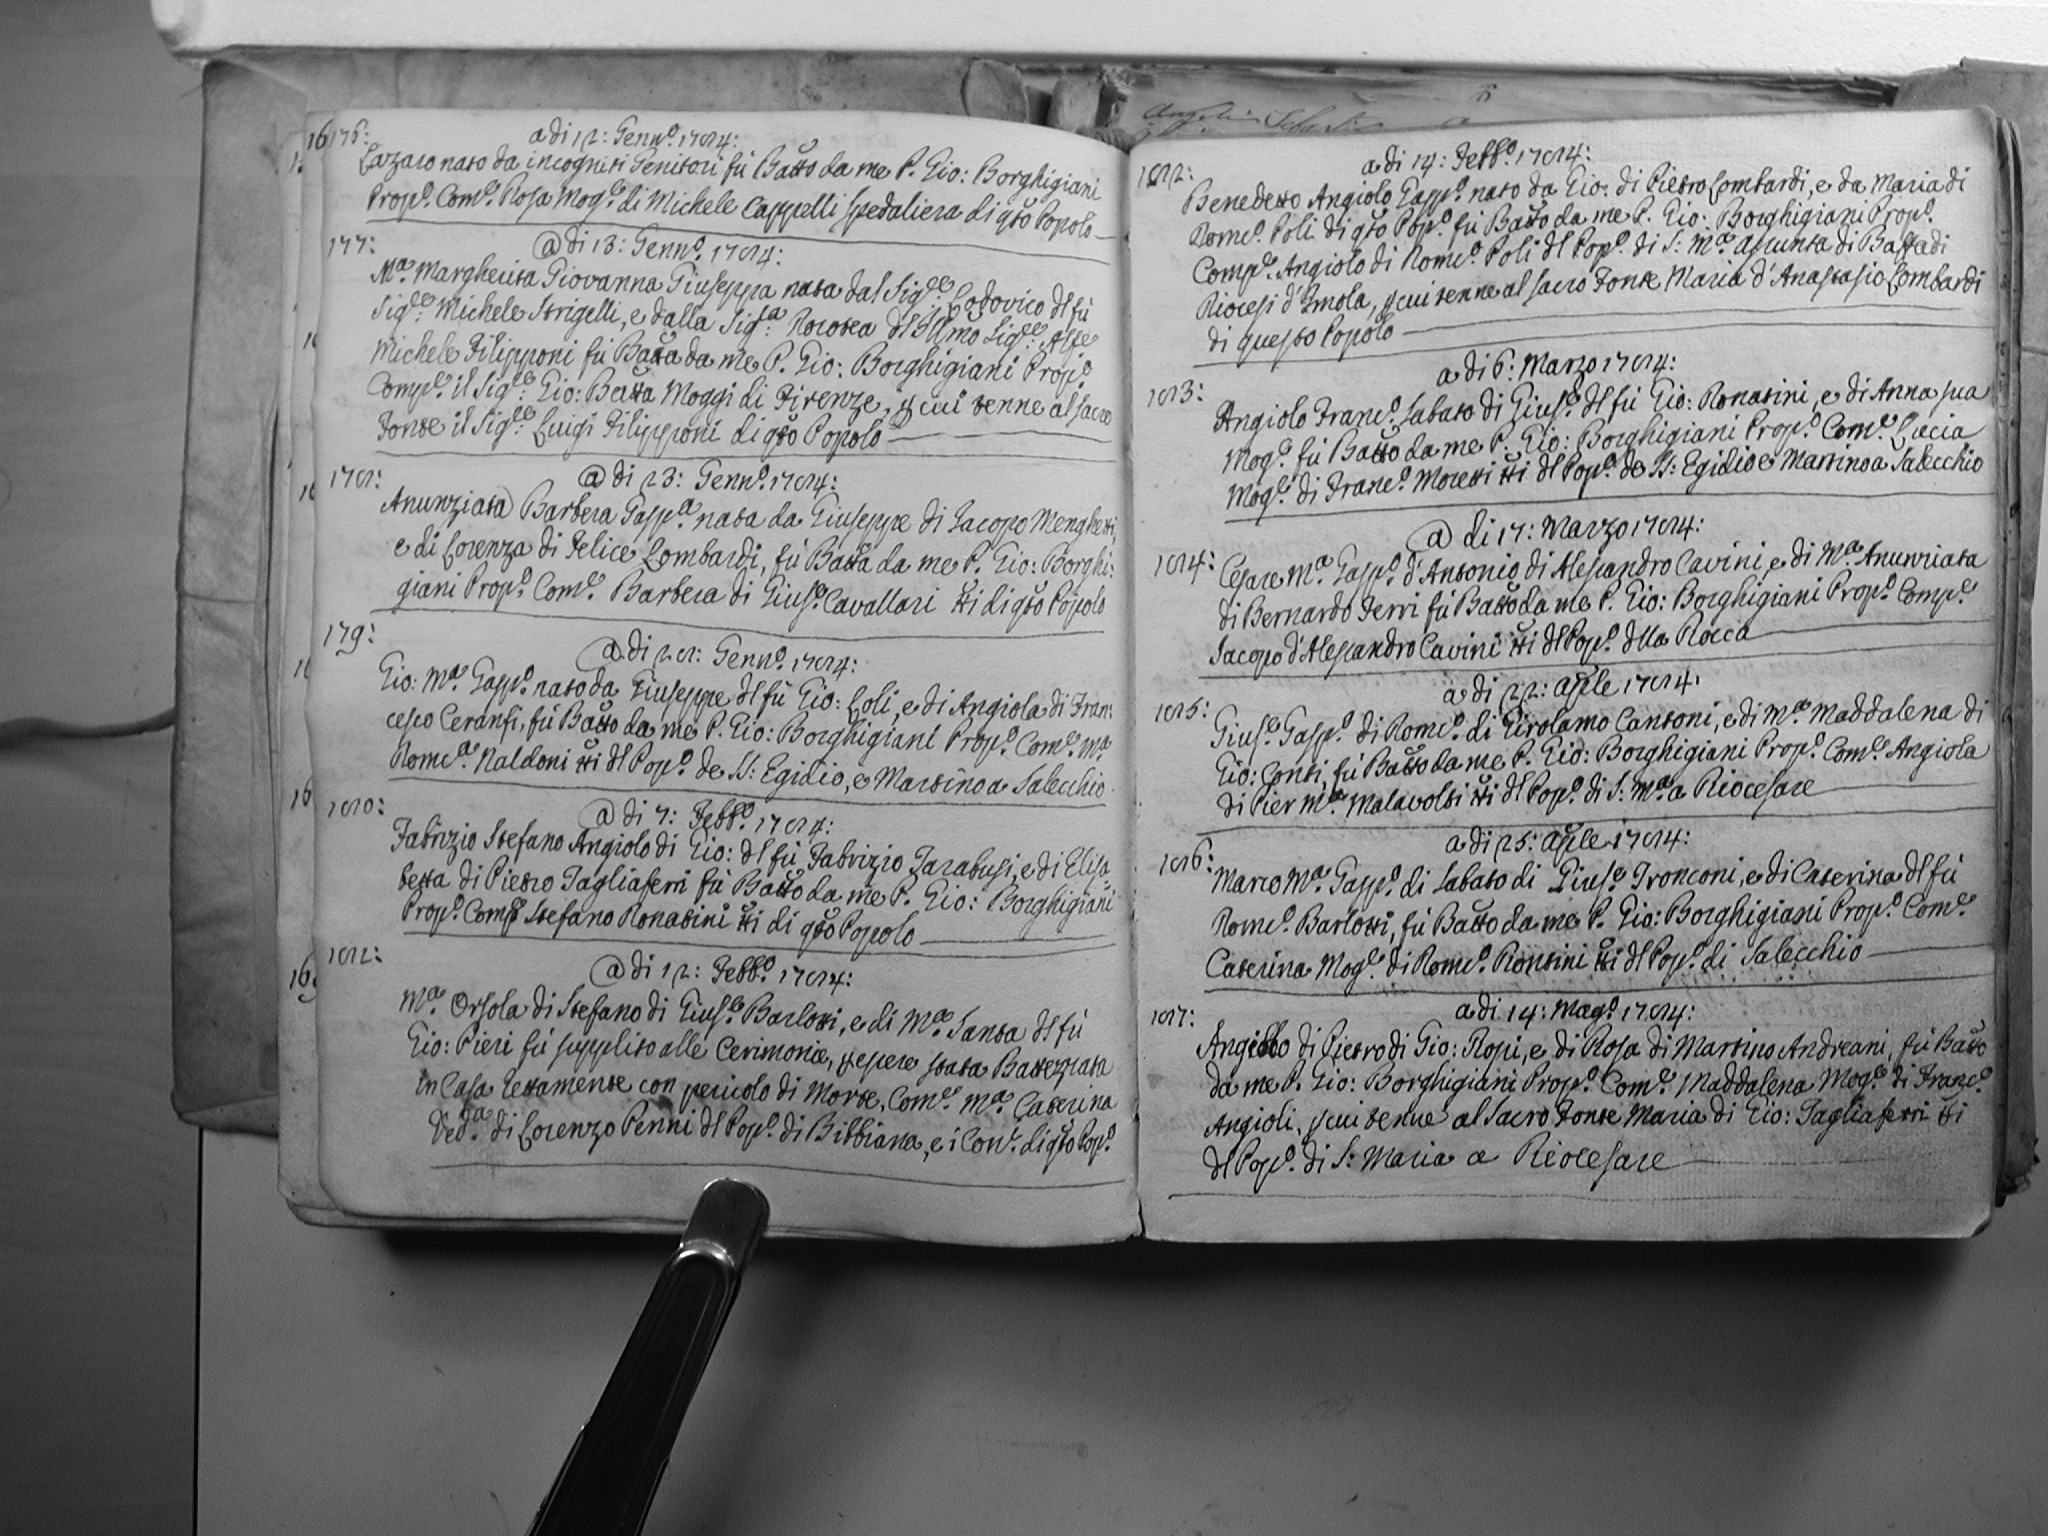 176:
a dì 12: Genn.o 1784:
Lazaro nato da incogniti Genitori fù Batto da me P. Gio: Borghigiani
Prop.o Com.e Rosa Mog.e di Michele Cappelli spedaliera di qsto Popolo
177:
a dì 13: Genn.o 1784:
M.a Margherita Giovanna Giuseppa nata dal Sig.re Lodovico dl fù
Sig.re Michele Strigelli, e dalla Sig.ra Dorotea dl Illmo Sig.re Alfe
Michele Filipponi fù Batta da me P. Gio: Borghigiani Prop.o
Comp.e il Sig.re Gio: Batta Moggi di Firenze, p cui tenne al sacro
Fonte il Sig.re Luigi Filipponi di qsto Popolo
178:
a dì 23: Genn.o 1784:
Anunziata Barbera Gasp.a nata da Giuseppe di Jacopo Menghetti,
e di Lorenza di Felice Lombardi, fù Batta da me P. Gio: Borghi:
giani Prop.o Com.e Barbera di Gius.e Cavallari tti di qsto Popolo
179:
a dì 28: Genn.o 1784:
Gio: M.a Gasp.o nato da Giuseppe dl fù Gio: Loli, e di Angiola di Fran:
cesco Ceranfi, fù Batto da me P. Gio: Borghigiani Prop.o Com.e M.a
Dome.a Naldoni tti dl Pop.o de SS: Egidio, e Martino a Salecchio
180:
a dì 7: Febb.o 1784:
Fabrizio Stefano Angiolo di Gio: dl fù Fabrizio Tarabusi, e di Elisa
betta di Pietro Tagliaferri fù Batto da me P. Gio: Borghigiani
Prop.o Comp.e Stefano Donatini tti di qsto Popolo
182:
a dì 12: Febb.o 1784:
M.a Orsola di Stefano di Gius.e Barlotti, e di M.a Santa dl fù
Gio: Pieri fù supplito alle Cerimonie, p essere stata Battezzata
in Casa rettamente con pericolo di Morte, Com.e M.a Caterina
Ved.a di Lorenzo Penni dl Pop.o di Bibbiana, e i Con.i di qsto Pop.o
182:
a dì 14: Febb.o 1784:
Benedetto Angiolo Gasp.o nato da Gio: di Pietro Lombardi, e da Maria di
Dome.o Poli di qsto Pop.o fù Batto da me P. Gio: Borghigiani Prop.o
Comp.e Angiolo di Dome.o Poli dl Pop.o di S: M.a Assunta di Baffadi
Diocesi d'Imola, p cui tenne al sacro Fonte Maria d'Anastasio Lombardi
di questo Popolo
183:
a dì 6: Marzo 1784:
Angiolo Franc.o Sabato di Gius.e dl fù Gio: Donatini, e di Anna sua
Mog.e fù Batto da me P. Gio: Borghigiani Prop.o Com.e Lucia
Mog.e di Franc.o Moretti tti dl Pop.o de SS: Egidio e Martino a Salecchio
184:
a dì 17: Marzo 1784:
Cesare M.a Gasp.o d'Antonio di Alessandro Cavini, e di M.a Anunziata
di Bernardo Ferri fù Batto da me P. Gio: Borghigiani Prop.o Comp.e
Jacopo d'Alessandro Cavini tti dl Pop.o dlla Rocca
185:
a dì 22: Aprile 1784:
Gius.e Gasp.o di Dome.o di Girolamo Cantoni, e di M.a Maddalena di
Gio: Conti, fù Batto da me P. Gio: Borghigiani Prop.o Com.e Angiola
di Pier M.a Malavolti tti dl Pop.o di S: M.a a Riocesare
186:
a dì 25: Aprile 1784:
Marco M.a Gasp.o di Sabato di Gius.e Tronconi, e di Caterina dl fù
Dome.o Barlotti, fù Batto da me P. Gio: Borghigiani Prop.o Com.e
Caterina Mog.e di Dome.o Rontini tti dl Pop.o di Salecchio
187:
a dì 14: Mag.o 1784:
Angiolo di Pietro di Gio: Rossi, e di Rosa di Martino Andreani, fù Batto
da me P. Gio: Borghigiani Prop.o Com.e Maddalena Mog.e di Franc.o
Angioli, p cui tenne al Sacro Fonte Maria di Gio: Tagliaferri tti
dl Pop.o di S: Maria a Riocesare